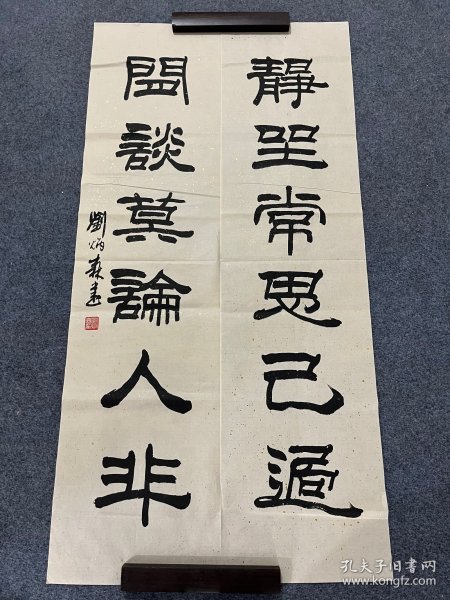 静坐常思己過
閒談莫論人非
劉炳森書
孔夫子旧书网
www.kongfz.com